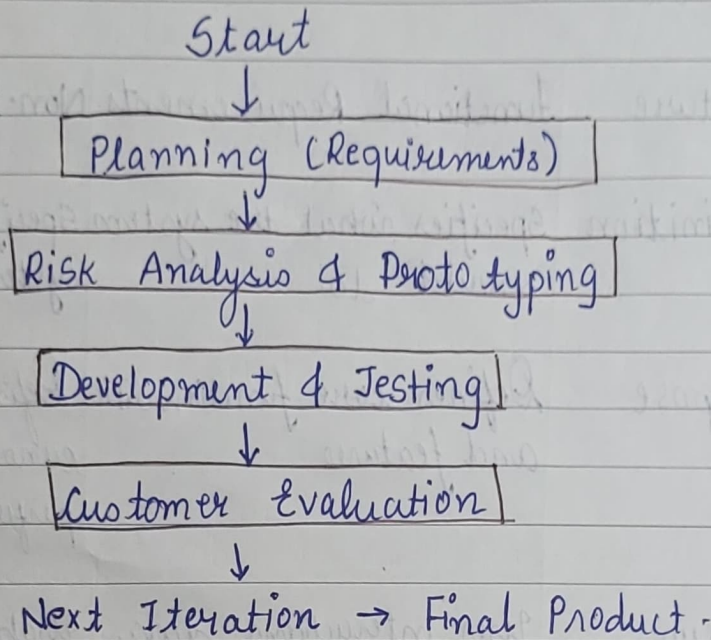 Start
↓
Planning (Requirements)
↓
Risk Analysis & Prototyping
↓
Development & Testing
↓
Customer Evaluation
↓
Next Iteration → Final Product.